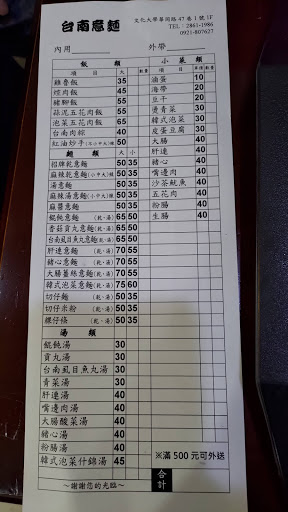 台南意麵
文化大學華岡路47巷1號1F
TEL：2861-1986
0921-807627
內用
外帶
飯類
項目 大 小 數量
雞魯飯 35
焢肉飯 45
豬腳飯 55
蒜泥五花肉飯 65
泡菜五花肉飯 65
台南肉粽 40
紅油炒手 50
麵類
招牌乾意麵 50 35
麻辣乾意麵 50 35
湯意麵 50 35
麻辣湯意麵 50 35
麻醬意麵 50 35
餛飩意麵(乾、湯) 65 50
香菇貢丸意麵(乾、湯) 65 50
台南虱目魚丸意麵(乾、湯) 65 50
肝連意麵(乾、湯) 70 55
豬心意麵(乾、湯) 70 55
大腸薑絲意麵(乾、湯) 70 55
韓式泡菜意麵(乾、湯) 75 60
切仔麵(乾、湯) 50 35
切仔米粉(乾、湯) 50 35
粿仔條(乾、湯) 50 35
湯類
餛飩湯 30
貢丸湯 30
台南虱目魚丸湯 30
青菜湯 30
肝連湯 40
嘴邊肉湯 40
大腸酸菜湯 40
豬心湯 40
粉腸湯 40
韓式泡菜什錦湯 45
～謝謝您的光臨～
小菜類
項目 單價 數量
油蛋 10
海帶 20
豆干 20
燙青菜 30
韓式泡菜 30
皮蛋豆腐 30
大腸 40
肝連 40
豬心 40
嘴邊肉 40
沙茶魷魚 40
五花肉 40
粉腸 40
生腸 40
※滿500元可外送
合計